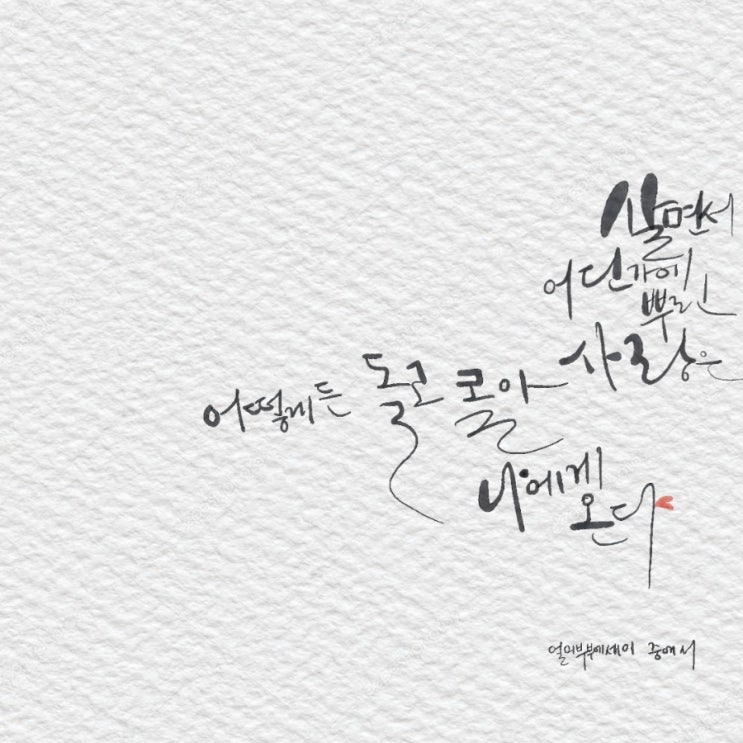 살면서
어딘가에
뿌린
사랑은
어떻게든 돌고 돌아
나에게
온다
중에서